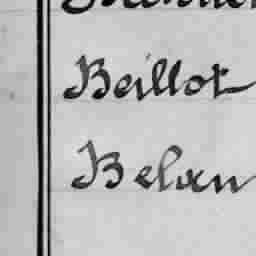 Beillot
Belan